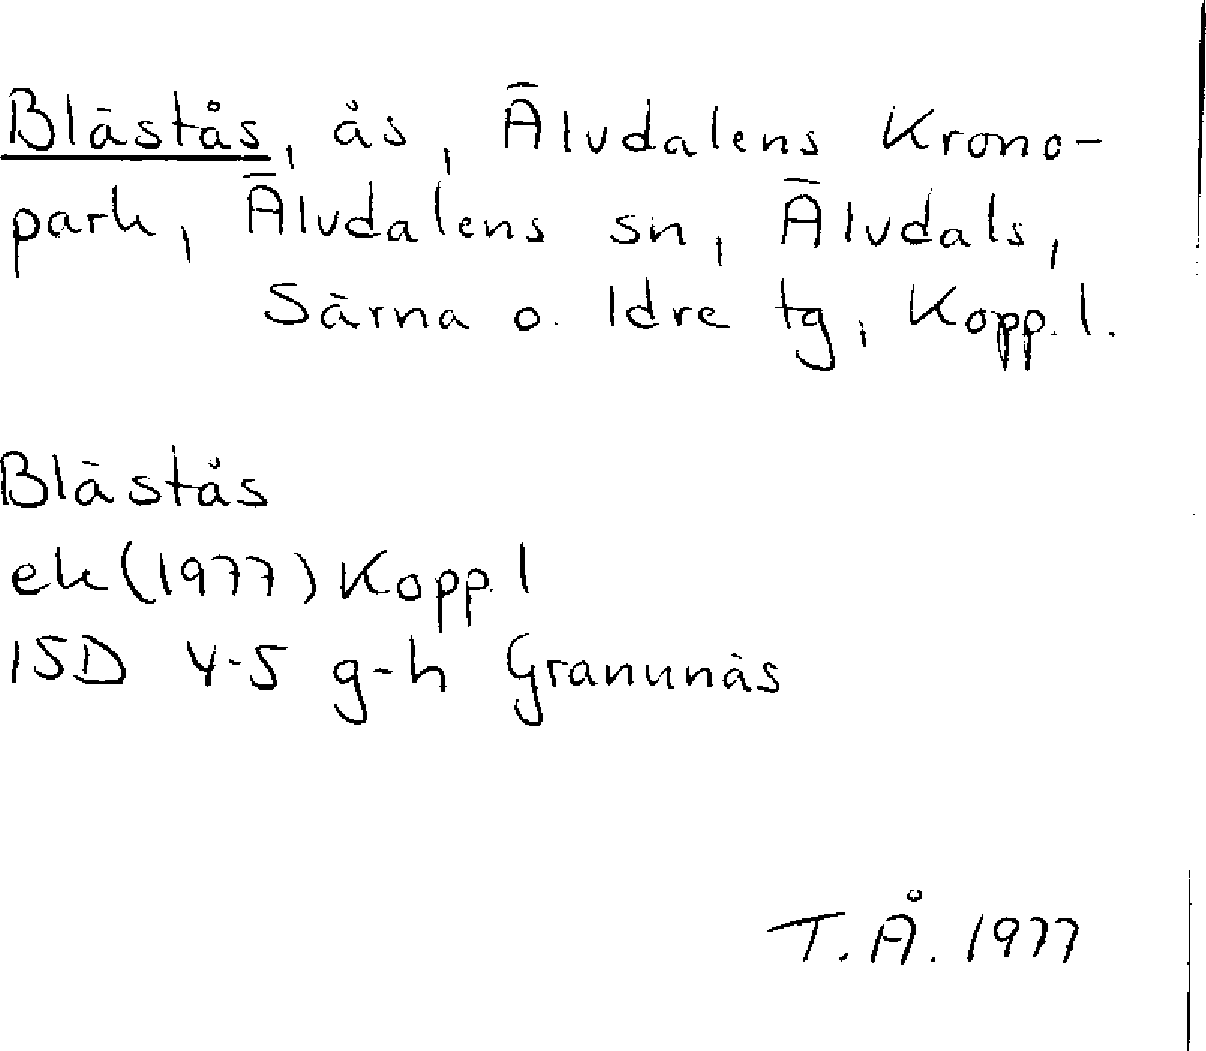 Blästås, ås, Älvdalens Krono-
park, Älvdalens sn, Älvdals,
Särna o. Idre tg, Kopp. l.
Blästås
ek (1977) Kopp l
15D 4-5 g-h Granunäs
T. Å. 1977